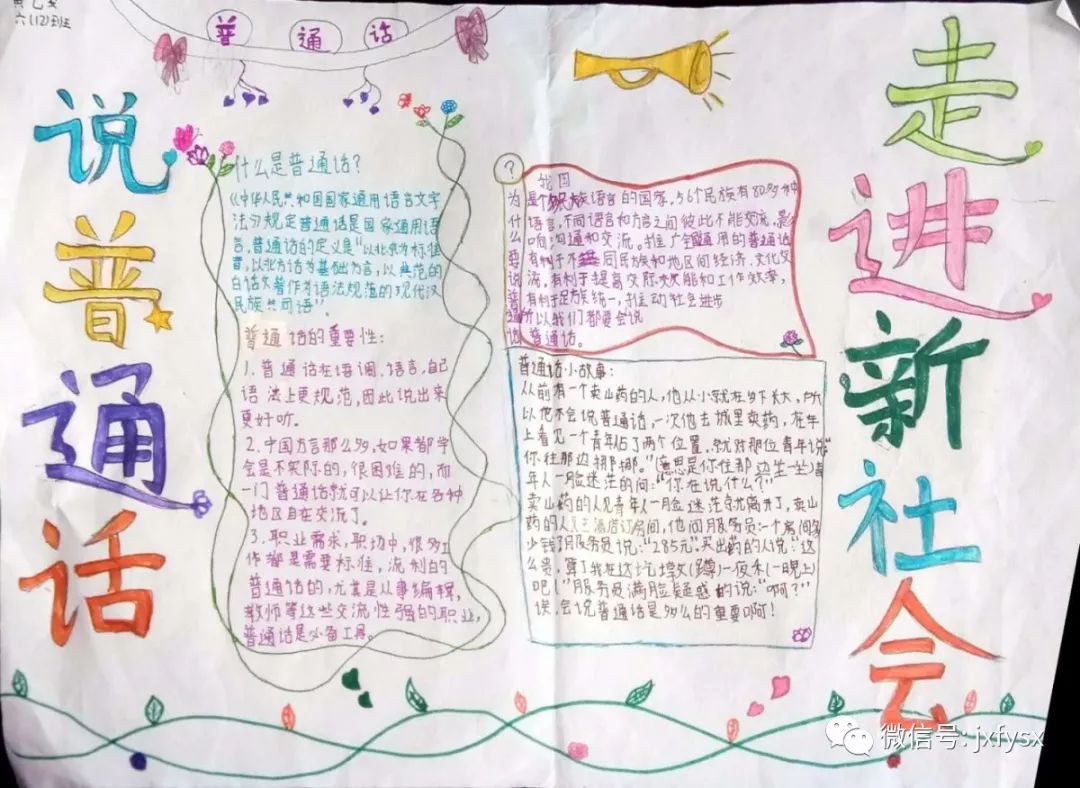 六(12)班
普通话
说普通话
走进新社会
什么是普通话?
《中华人民共和国国家通用语言文字
法》规定普通话是国家通用语
言,普通话的定义是"以北京为标准
音,以北方话为基础方言,以典范的
白话文著作为语法规范的现代汉
民族共同语".
普通话的重要性:
1.普通话在语调、语言,自己
语法上更规范,因此说出来
更好听。
2.中国方言那么多,如果都学
会是不实际的,很困难的,而
一门普通话就可以让你在各种
地区自在交流了。
3.职业需求,职场中,很多工
作都是需要标准,流利的
普通话的,尤其是从事编辑,
教师等这些交流性强的职业,
普通话是必备工具。
?
为什么要说普通话
我国
是个多民族语言的国家,56个民族有80多种
语言,不同语言和方言之间彼此不能交流,影
响沟通和交流。推广全国通用的普通话
有利于不同民族和地区间经济、文化交
流,有利于提高交际效能和工作效率,
有利于民族统一,推动社会进步
所以我们都要会说
普通话。
普通话小故事:
从前有一个卖山药的人,他从小就在乡下长大,所
以他不会说普通话,一次他去城里卖药,在车
上看见一个青年占了两个位置,就对那位青年说"
你往那边挪挪。"(意思是你往那边坐一坐)青
年人一脸迷茫的问:"你在说什么?"
卖山药的人见青年人一脸迷茫就离开了,卖山
药的人又去酒店订房间,他问服务员:一个房间多
少钱?服务员说:"285元".卖山药的人说:"这
么贵,算了我在这圪蹴(蹲)一夜来(一晚上)
吧!"服务员满脸疑惑的说:"啊?"
诶,会说普通话是多么的重要啊!
微信号: jxfysx